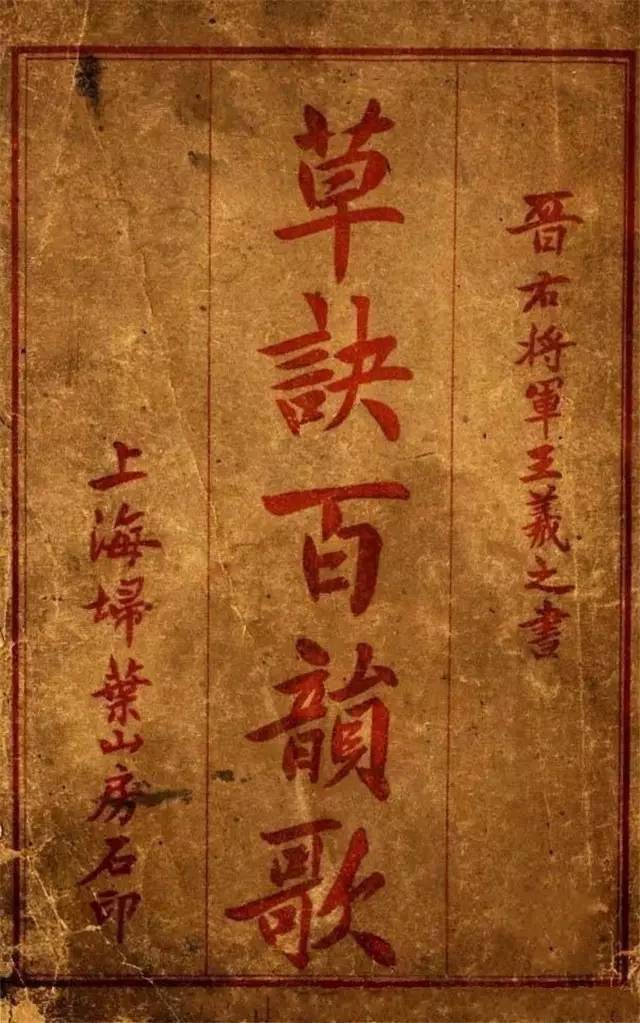 晉右將軍王羲之書
草訣百韻歌
上海埽葉山房石印